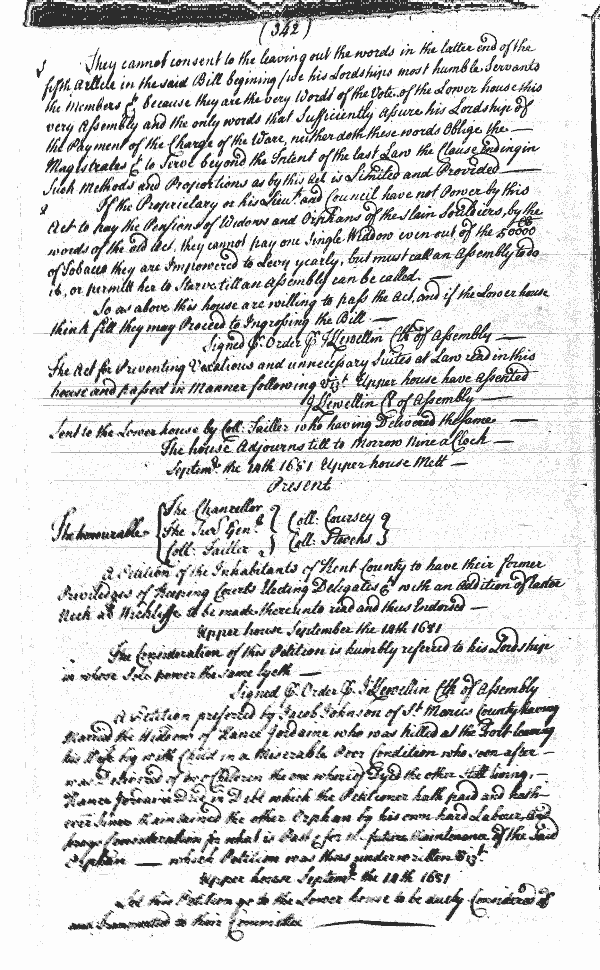 (342)
They cannot consent to the leaving out the words in the latter end of the
fifth Article in the said Bill begining (we his Lordships most humble Servants
the Members &c because they are the very Words of the Vote of the Lower house this
very Assembly and the only words that Sufficiently Assure his Lordship of
the Payment of the Charge of the Warr, neither doth these words Oblige the —
Magistrates &c to Serve beyond the Intent of the last Law the Clause ending in
Such Methods and Proportions as by this Act is Limited and Provided —
2 If the Proprietary or his Lieut and Councill have not Power by this
Act to pay the Pensions of Widows and Orphans of the slain Souldiers, by the
words of the old Act, they cannot pay one Single Widdow even out of the 50000
of Tobacco they are Impowered to Levy yearly, but must call an Assembly to do
it, or permitt her to Starve till an Assembly can be called. —
So as above this house are willing to pass the Act, and if the Lower house
think fitt they may Proceed to Ingrossing the Bill —
Signed P. Order P. J Llewellin Clk of Assembly —
The Act for Preventing Vexatious and unnecessary Suites at Law read in this
house and passed in Manner following Vizt Upper house have Assented
J Llewellin Cl of Assembly —
Sent to the Lower house by Coll: Tailler who having Delivered the same —
The house Adjourns till to Morrow Nine a Clock —
Septemr the 14th 1681 Upper house Mett —
Present
The honourable { The Chancellor } { Coll: Coursey }
The Surv Genll
Coll: Tailler Coll: Stevens
A Petition of the Inhabitants of Kent County to have their former
Priviledges of keeping Courts Electing Delegates &c with an Addition of
Neck at Wickliffe to be made thereunto read and thus Endorsed —
Upper house September the 14th 1681
The Consideration of this Petition is humbly referred to his Lordship
in whose Sole power the same lyeth —
Signed P. Order P. J Llewellin Clk of Assembly
A Petition preferred by Jacob Johnson of St Maries County having
Married the Widdow of Hance Jordaine who was killed at the Fort leaving
his Wife big with Child in a Miserable Poor Condition who soon after —
was delivered of two Children the one whereof Dyed the other still living. —
Hance Jordaine Died in Debt which the Petitioner hath paid and hath
ever since Maintained the other Orphan by his own hard Labour, and
prays Consideration for what is Past & for the future Maintenance of the Said
Orphan — which Petition was thus underwritten Vizt
Upper house Septemr the 14th 1681
Let this Petition go to the Lower house to be duely Considered of
and transmitted to their Committee —